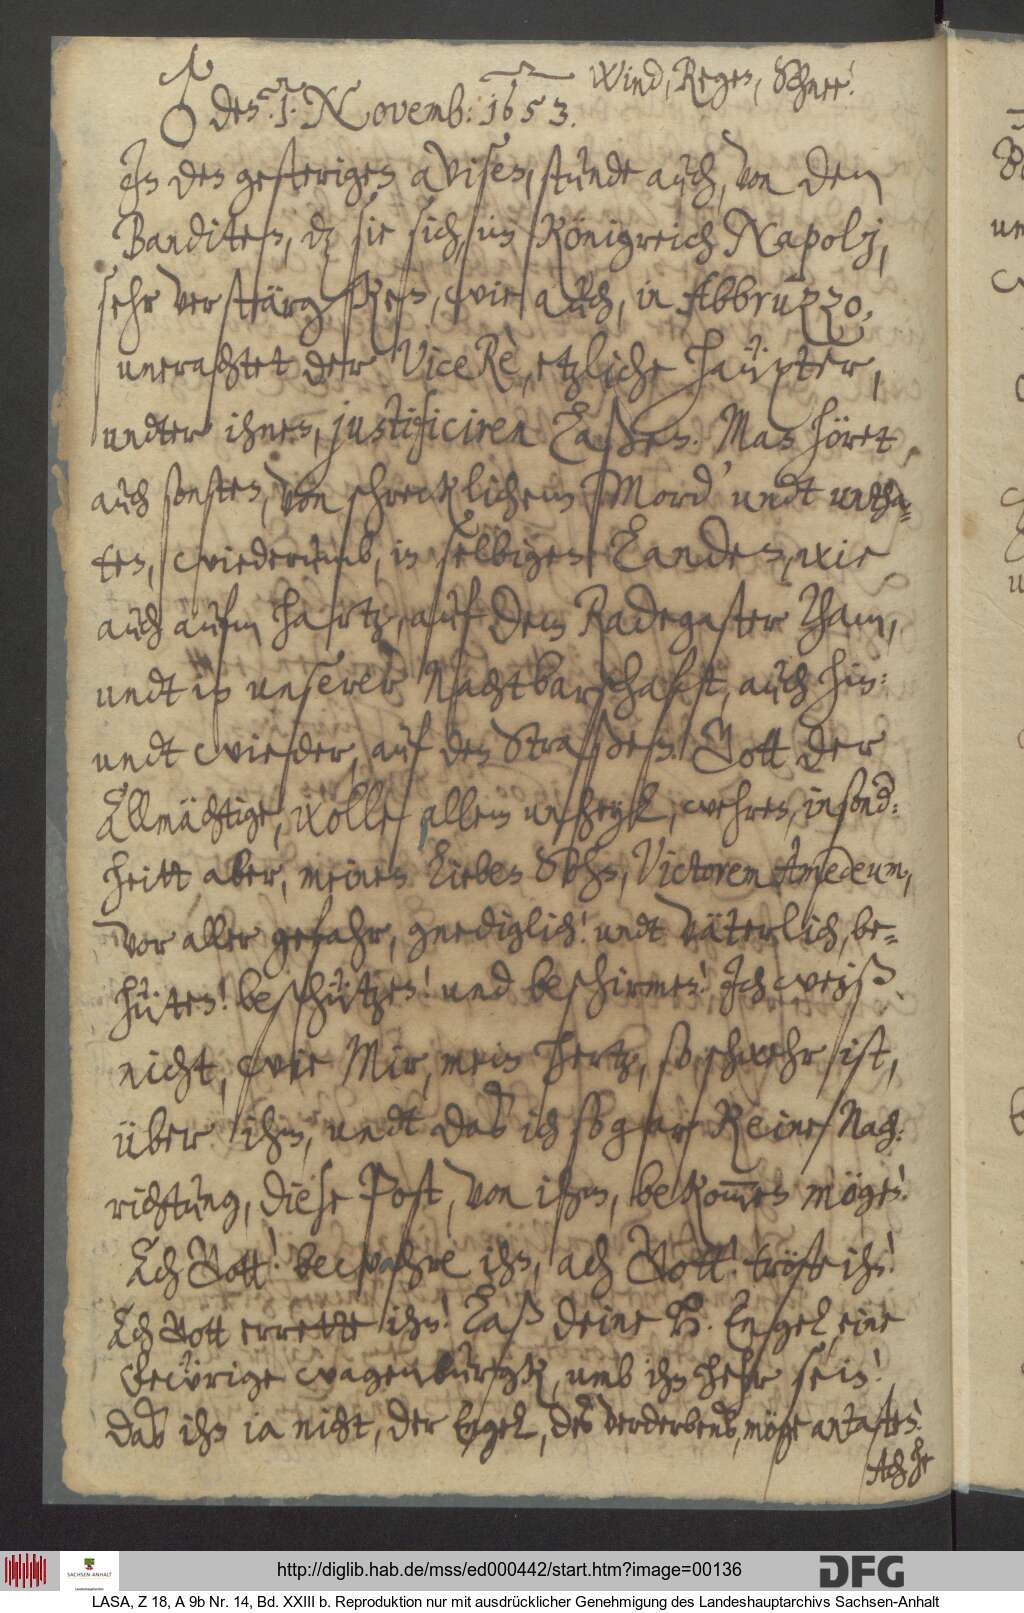 ♂ den: 1. Novemb: 1653. Wind, Regen, Schnee!
In den gesterigen avisen, stunde auch, von den
Banditen, dz sie sich, im Königreich Napolj,
sehr verstärgken, wie auch, in Abbruzzo,
unerachtet der Vice Rè, etzliche haüpter,
undter ihnen, justificiren laßen. Man höret
auch sonsten, von schrecklichem Mord' undt untha-
ten, wiederumb, in selbigen Landen, wie
auch aufm hartz, auf dem Radegaster Tham,
undt in unserer Nachtbarschafft, auch hin:
undt wieder, auf den Straßen. Gott der
Allmächtige, wolle allem unheyl, wehren, insond:
heitt aber, meinen lieben Sohn, Victorem Amedeum,
vor aller gefahr, gnediglich! undt väterlich, be-
hüten! beschützen! und beschirmen! Ich weiß
nicht, wie Mir, mein hertz, so schwehr ist,
über ihm, undt das ich so gar keine Nach:
richtung, diese Post, von ihm, bekom̅en mögen!
Ach Gott! bewahre ihn, ach Gott! tröste ihn!
Ach Gott errette ihn! Laß deine H. Engel, eine
fewrige wagenburgk, umb ihn hehr sein!
das ihn ja nicht, der Engel, des verderbens, möge antasten!
Ach he
http://diglib.hab.de/mss/ed000442/start.htm?image=00136
SACHSEN-ANHALT
DFG
LASA, Z 18, A 9b Nr. 14, Bd. XXIII b. Reproduktion nur mit ausdrücklicher Genehmigung des Landeshauptarchivs Sachsen-Anhalt